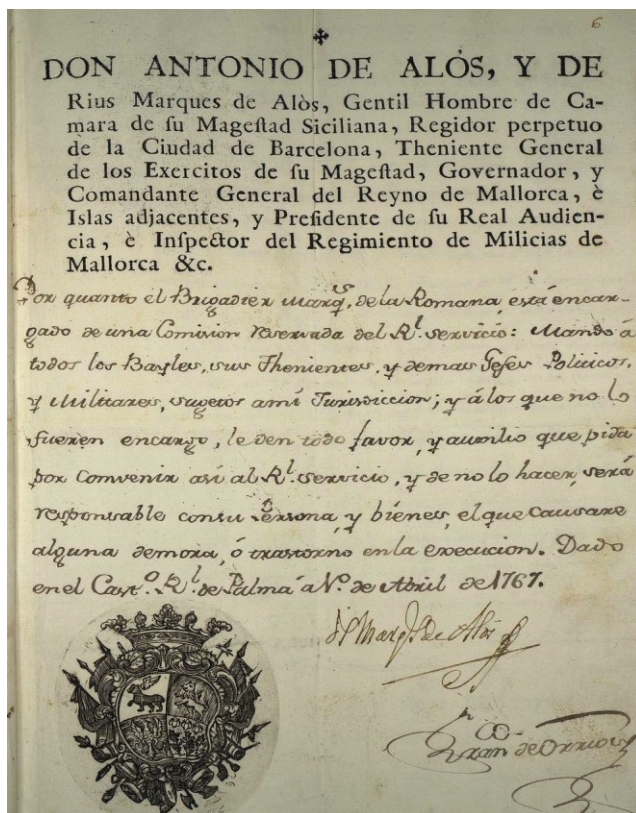 6
DON ANTONIO DE ALÒS, Y DE
Rius Marques de Alòs, Gentil Hombre de Ca-
mara de ſu Mageſtad Siciliana, Regidor perpetuo
de la Ciudad de Barcelona, Theniente General
de los Exercitos de ſu Mageſtad, Governador, y
Comandante General del Reyno de Mallorca, è
Islas adjacentes, y Preſidente de ſu Real Audien-
cia, è Inſpector del Regimiento de Milicias de
Mallorca &c.
Por quanto el Brigadier Marq.s de la Romana, está encar-
gado de una Comision reservada del Rl. servicio: Mando á
todos los Bayles, sus Thenientes, y demas Gefes Politicos,
y Militares, sugetos ami Jurisdiccion; y á los que no lo
fueren encargo, le den todo favor, y auxilio que pida
por Convenir asi al Rl. servicio, y de no lo hacer, será
responsable consu Persona, y bienes, el que causare
alguna demora, ó trastorno en la execucion. Dado
en el Casto. Rl. de Palma á de Abril de 1767.
El Marqs de Alós